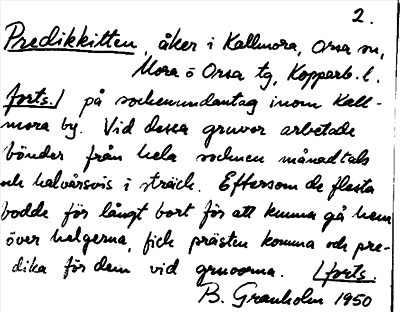 2.
Predikkitten, åker i Kallmora, Orsa sn,
Mora o Orsa tg, Kopparb. l.
forts./ på sockenundantag inom Kall-
mora by. Vid dessa gruvor arbetade
bönder från hela socknen månadtals
och halvårsvis i sträck. Eftersom de flesta
bodde för långt bort för att kunna gå hem
över helgerna, fick prästen komma och pre-
dika för dem vid gruvorna. /forts.
B. Granholm 1950